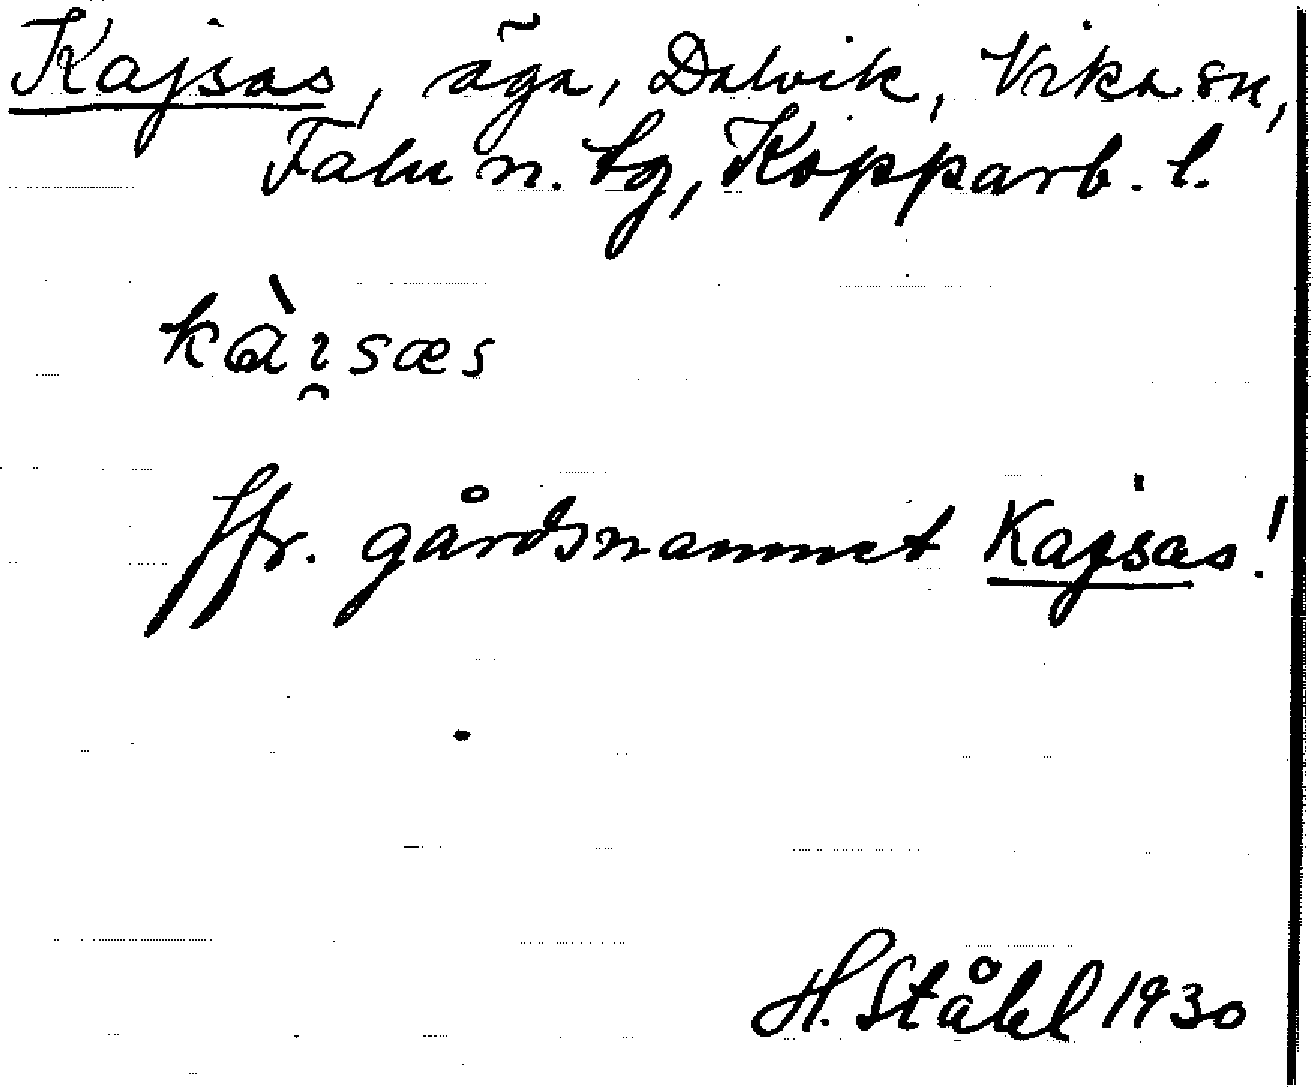 Kajsas, äga, Dalvik, Vika sn,
Falu n. tg, Kopparb. l.
kàı̯sæs
Jfr. gårdsnamnet Kajsas!
H. Ståhl 1930